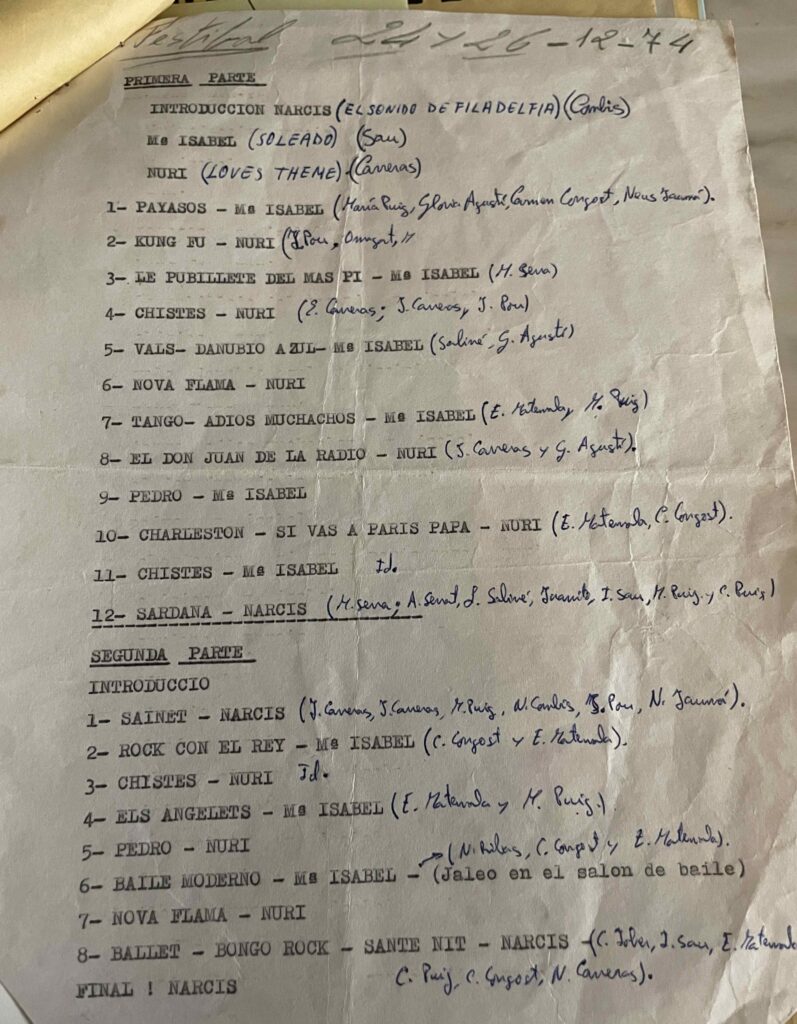 Festibal 24 y 26-12-74
PRIMERA PARTE
INTRODUCCION NARCIS (EL SONIDO DE FILADELFIA) (Combis)
Mª ISABEL (SOLEADO) (Sau)
NURI (LOVES THEME) (Carreras)
1- PAYASOS - Mª ISABEL (María Puig, Gloria Agustí, Carmen Congost, Neus Jaumá).
2- KUNG FU - NURI (J. Pou,
3- LE PUBILLETE DEL MAS PI - Mª ISABEL (M. Serra)
4- CHISTES - NURI (E. Carreras; J. Carreras, J. Pou)
5- VALS- DANUBIO AZUL- Mª ISABEL (Saliné, G. Agustí)
6- NOVA FLAMA - NURI
7- TANGO- ADIOS MUCHACHOS - Mª ISABEL (E. M. Puig)
8- EL DON JUAN DE LA RADIO - NURI (J. Carreras y G. Agustí).
9- PEDRO - Mª ISABEL
10- CHARLESTON - SI VAS A PARIS PAPA - NURI (E. C. Congost).
11- CHISTES - Mª ISABEL Id.
12- SARDANA - NARCIS (M. Serra; A. Serrat, J. Saliné, Juanito, I. Sau, M. Puig y C. Puig)
SEGUNDA PARTE
INTRODUCCIO
1- SAINET - NARCIS (J. Carreras, J. Carreras, M. Puig, N. Combis, J. Pou, N. Jaumá).
2- ROCK CON EL REY - Mª ISABEL (C. Congost y E.
3- CHISTES - NURI Id.
4- ELS ANGELETS - Mª ISABEL (E. y M. Puig.)
5- PEDRO - NURI
(N. Ribas, C. Congost y E.
6- BAILE MODERNO - Mª ISABEL - (Jaleo en el salon de baile)
7- NOVA FLAMA - NURI
8- BALLET - BONGO ROCK - SANTE NIT - NARCIS -(C. I. Sau, E.
C. Puig, C. Congost, N. Carreras).
FINAL ! NARCIS